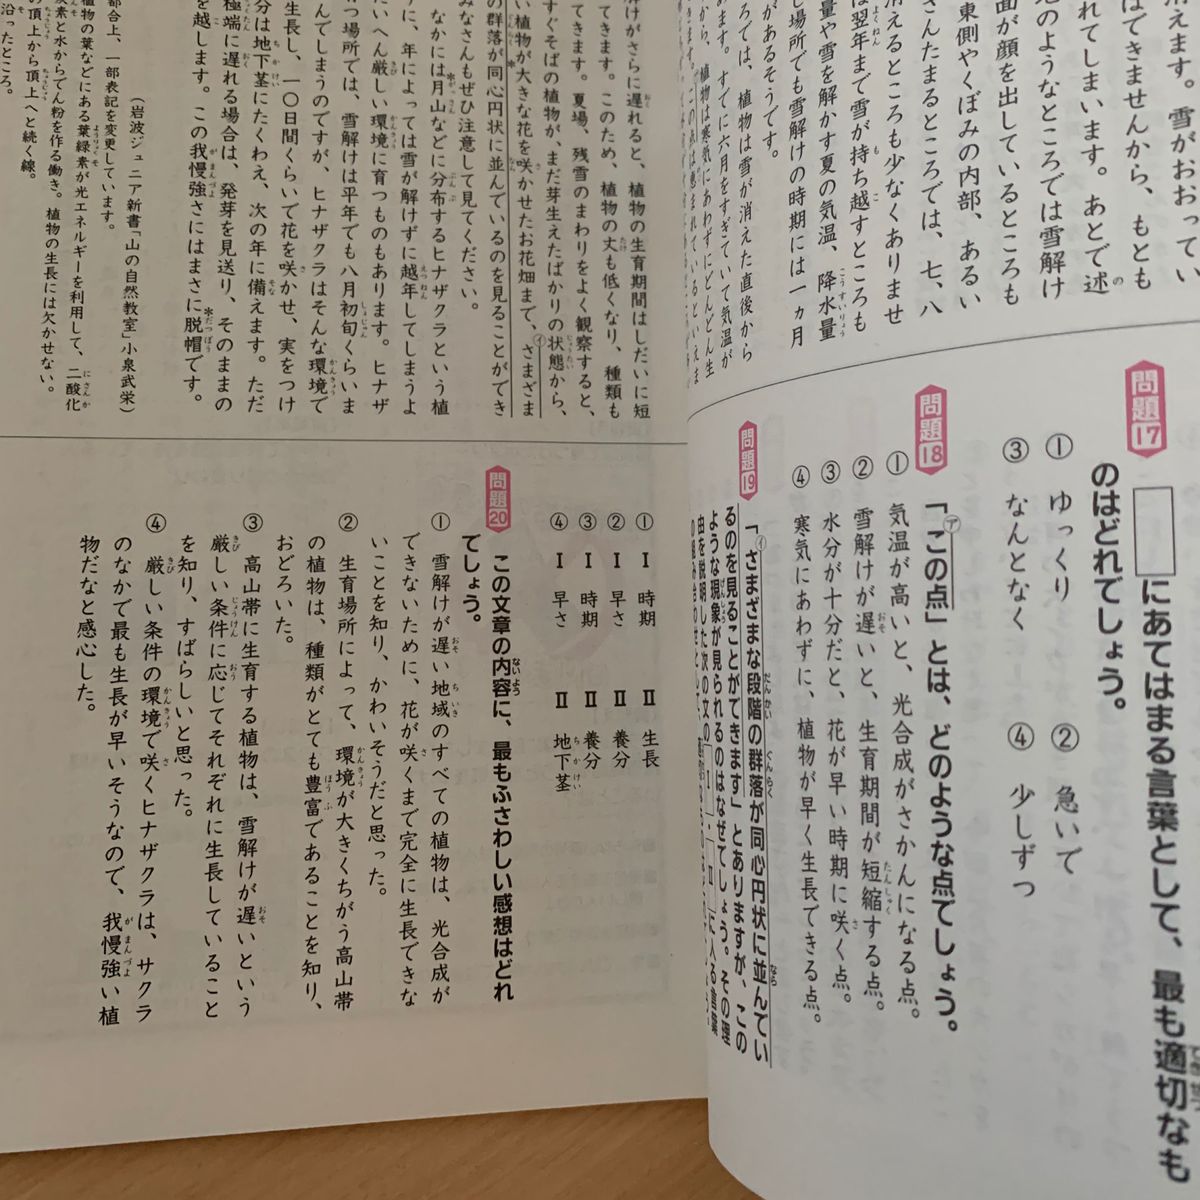 消えます。雪がおおってい
はできませんから、もとも
れてしまいます。あとで述
のようなところでは雪解け
面が顔を出しているところも
東側やくぼみの内部、あるい
さんたまるところでは、七、八
消えるところも少なくありませ
は翌年まで雪が持ち越すところも
量や雪を解かす夏の気温、降水量
じ場所でも雪解けの時期には一ヵ月
があるそうです。
ろでは、植物は雪が消えた直後から
ます。すでに六月をすぎていて気温が
から、植物は寒気にあわずにどんどん生
解けがさらに遅れると、植物の生育期間はしだいに短
てきます。このため、植物の丈も低くなり、種類も
てきます。夏場、残雪のまわりをよく観察すると、
すぐそばの植物が、まだ芽生えたばかりの状態から、
い植物が大きな花を咲かせたお花畑まで、㋑さまざま
の群落が同心円状に並んでいるのを見ることができ
みなさんもぜひ注意して見てください。
なかには月山などに分布するヒナザクラという植
に、年によっては雪が解けずに越年してしまうよ
いへん厳しい環境に育つものもあります。ヒナザ
つ場所では、雪解けは平年でも八月初旬くらいま
んでしまうのですが、ヒナザクラはそんな環境で
生長し、一〇日間くらいで花を咲かせ、実をつけ
分は地下茎にたくわえ、次の年に備えます。ただ
極端に遅れる場合は、発芽を見送り、そのままの
を越します。この我慢強さにはまさに脱帽です。
（岩波ジュニア新書「山の自然教室」小泉武栄）
都合上、一部表記を変更しています。
植物の葉などにある葉緑素が光エネルギーを利用して、二酸化
炭素と水からでん粉を作る働き。植物の生長には欠かせない。
の頂上から頂上へと続く線。
沿ったところ。
問題17
□にあてはまる言葉として、最も適切なも
のはどれでしょう。
① ゆっくり ② 急いで
③ なんとなく ④ 少しずつ
問題18
「㋐この点」とは、どのような点でしょう。
① 気温が高いと、光合成がさかんになる点。
② 雪解けが遅いと、生育期間が短縮する点。
③ 水分が十分だと、花が早い時期に咲く点。
④ 寒気にあわずに、植物が早く生長できる点。
問題19
「㋑さまざまな段階の群落が同心円状に並んでい
るのを見ることができます」とありますが、この
ような現象が見られるのはなぜでしょう。その理
由を説明した次の文の Ⅰ・Ⅱ に入る言葉
① Ⅰ 時期 Ⅱ 生長
② Ⅰ 早さ Ⅱ 養分
③ Ⅰ 時期 Ⅱ 養分
④ Ⅰ 早さ Ⅱ 地下茎
問題20
この文章の内容に、最もふさわしい感想はどれ
でしょう。
① 雪解けが遅い地域のすべての植物は、光合成が
できないために、花が咲くまで完全に生長できな
いことを知り、かわいそうだと思った。
② 生育場所によって、環境が大きくちがう高山帯
の植物は、種類がとても豊富であることを知り、
おどろいた。
③ 高山帯に生育する植物は、雪解けが遅いという
厳しい条件に応じてそれぞれに生長していること
を知り、すばらしいと思った。
④ 厳しい条件の環境で咲くヒナザクラは、サクラ
のなかで最も生長が早いそうなので、我慢強い植
物だなと感心した。